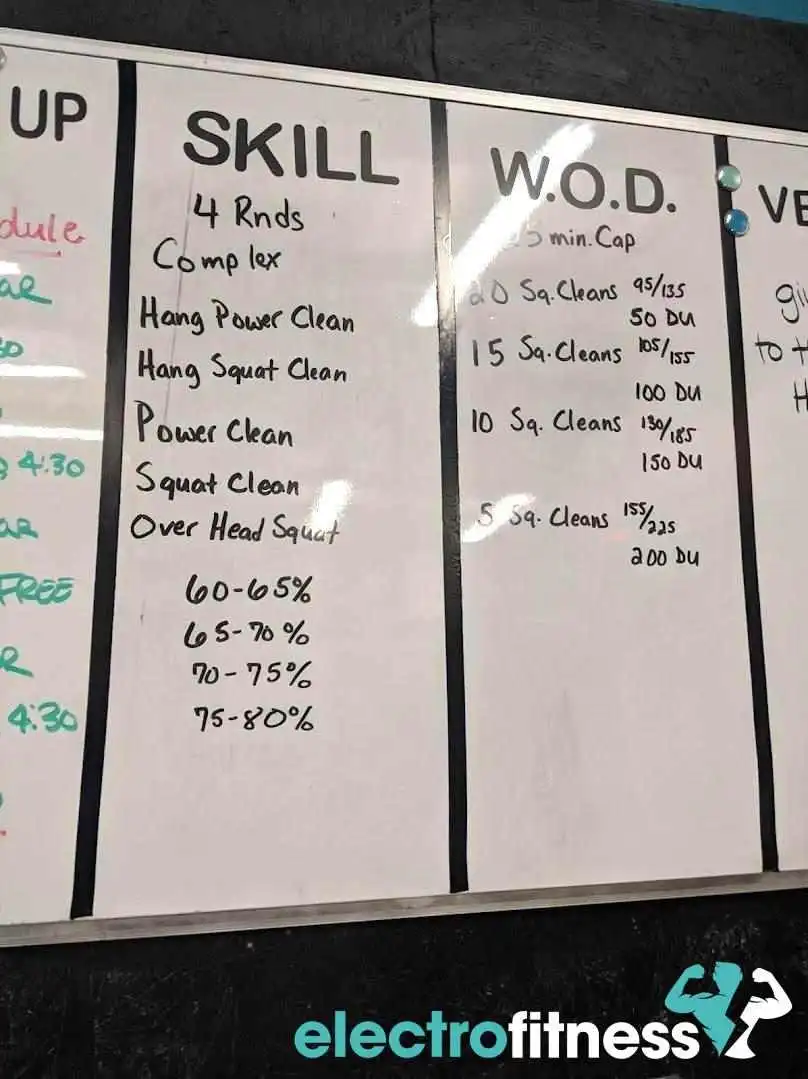 UP
4:30
FREE
4:30
SKILL
4 Rnds
Complex
Hang Power Clean
Hang Squat Clean
Power Clean
Squat Clean
Over Head Squat
60-65%
65-70%
70-75%
75-80%
W.O.D.
min. Cap
20 Sq. Cleans 95/135
50 DU
15 Sq. Cleans 105/155
100 DU
10 Sq. Cleans 130/185
150 DU
5 Sq. Cleans 155/225
200 DU
to
electrofitness